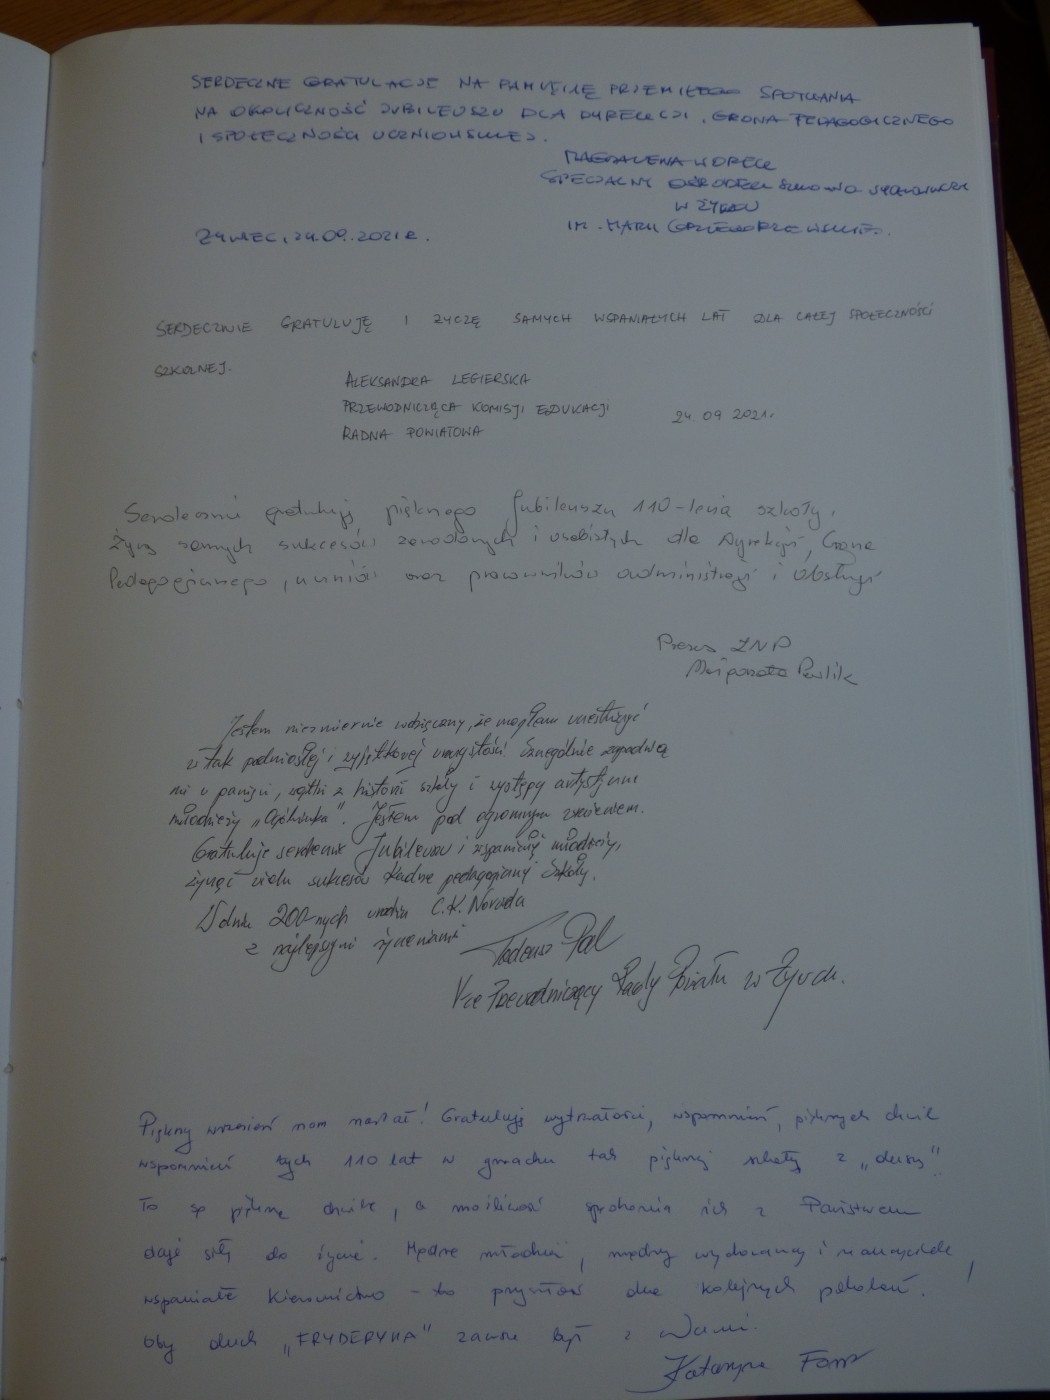 SERDECZNE GRATULACJE NA PAMIĄTKĘ PRZEMIŁEGO SPOTKANIA
NA OKOLICZNOŚĆ JUBILEUSZU DLA DYREKCJI, GRONA PEDAGOGICZNEGO
I SPOŁECZNOŚCI UCZNIOWSKIEJ.
MAGDALENA
SPECJALNY OŚRODEK SZKOLNO WYCHOWAWCZY
W ŻYWCU
ŻYWIEC, 24.09.2021 R.
IM. MARII GRZEGORZEWSKIEJ.
SERDECZNIE GRATULUJĘ I ŻYCZĘ SAMYCH WSPANIAŁYCH LAT DLA CAŁEJ SPOŁECZNOŚCI
SZKOLNEJ.
ALEKSANDRA LEGIERSKA
PRZEWODNICZĄCA KOMISJI EDUKACJI
24 09 2021r.
RADNA POWIATOWA
Serdecznie gratuluję pięknego Jubileuszu 110-lecia szkoły.
Życzę samych sukcesów zawodowych i osobistych dla Dyrekcji, Grona
Pedagogicznego, uczniów oraz pracowników administracji i obsługi
Prezes ZNP
Małgorzata Pawlik
Jestem niezmiernie wdzięczny, że mogłem uczestniczyć
w tak podniosłej i wyjątkowej uroczystości! Szczególnie zapadną
mi w pamięci, wątki z historii szkoły i występy artystyczne
młodzieży „Ogólniaka". Jestem pod ogromnym wrażeniem.
Gratuluję serdecznie Jubileuszu i wspaniałej młodzieży,
życząc wielu sukcesów Kadrze pedagogicznej Szkoły.
W dniu 200-nych urodzin C.K. Norwida
z najlepszymi życzeniami
Tadeusz
Vice Przewodniczący Rady Powiatu w Żywcu.
Piękny wrzesień nam nastał! Gratuluję wytrwałości, wspomnień, pięknych chwil
wspomnień tych 110 lat w gmachu tak pięknej szkoły z „duszą".
To są piękne chwile, a możliwość spotkania ich z Państwem
daje siłę do życia. Mądra młodzież, mądrzy wychowawcy i nauczyciele
wspaniałe Kierownictwo – to przyszłość dla kolejnych pokoleń!
Oby duch „FRYDERYKA" zawsze był z Wami.
Katarzyna